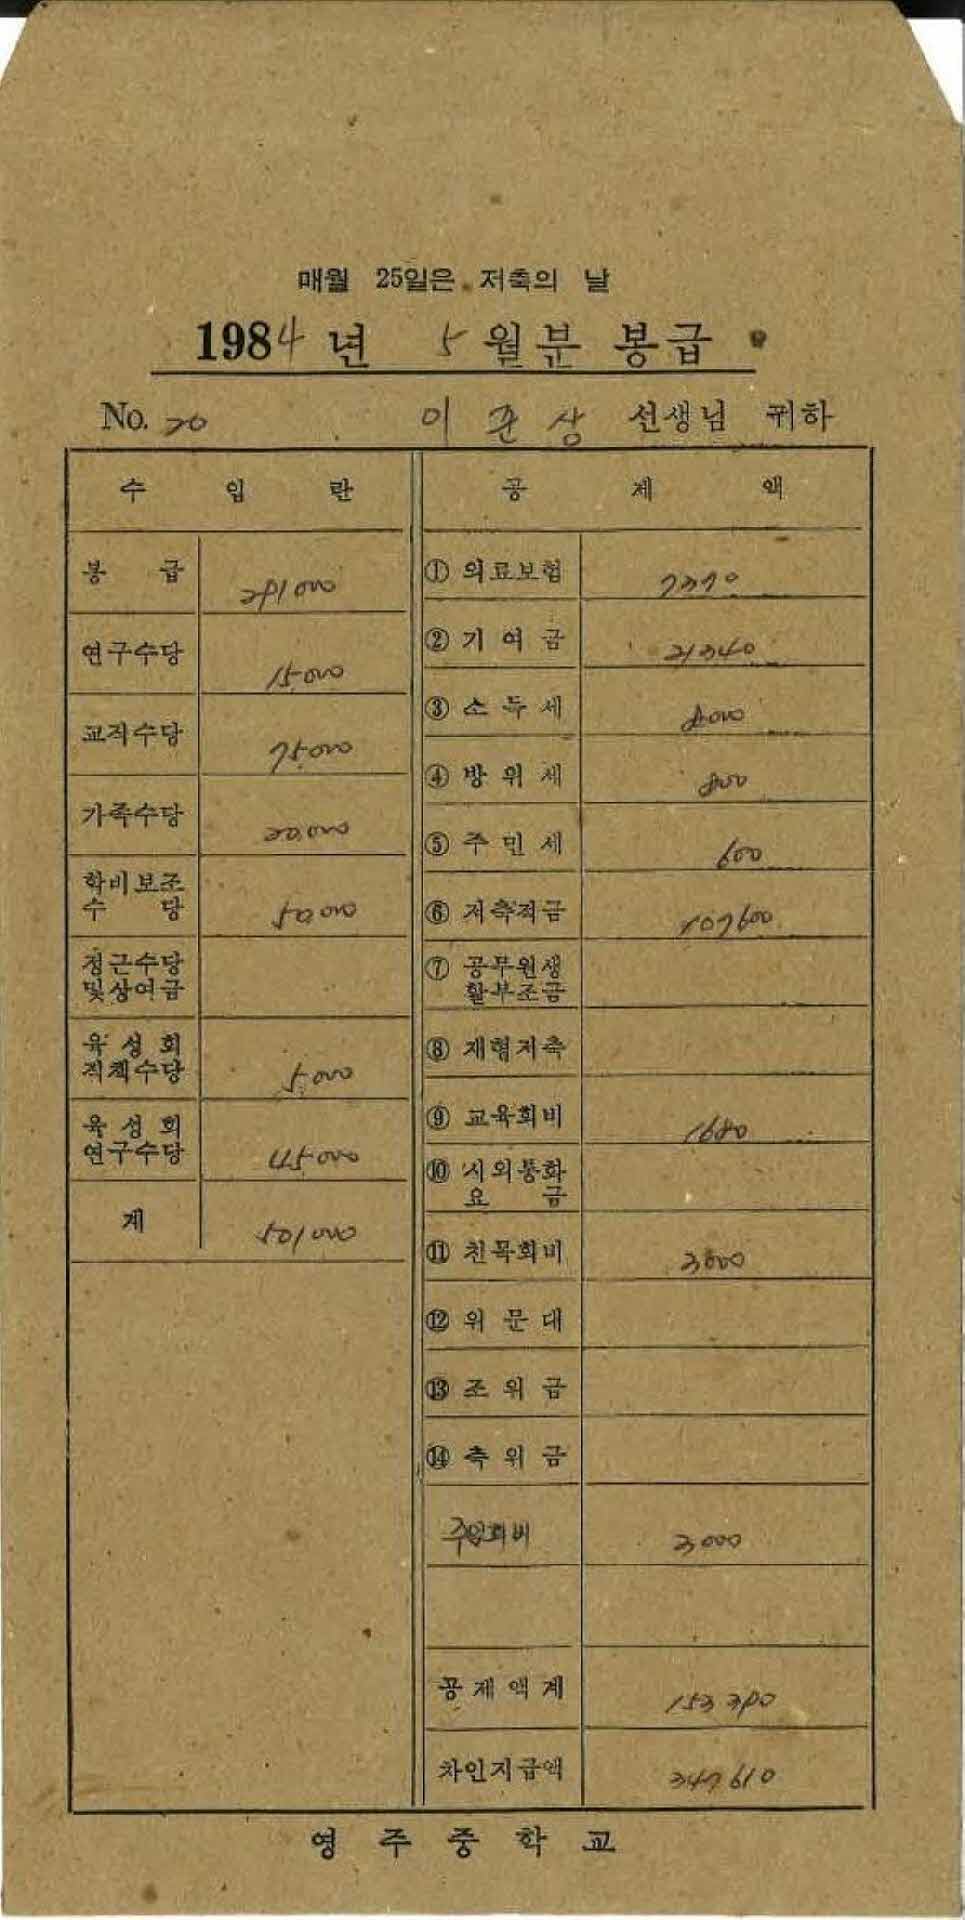 매월 25일은 저축의 날
1984년 5월분 봉급
No. 20 이준상 선생님 귀하
수 입 란
봉 급 291000
연구수당 15,000
교직수당 75,000
가족수당 20,000
학비보조
수 당 50,000
정근수당
및상여금
육성회
직책수당 5,000
육성회
연구수당 45000
계 501000
공 제 액
① 의료보험 7370
② 기여금 21340
③ 소득세 8000
④ 방위세 800
⑤ 주민세 600
⑥ 저축적금 107600
⑦ 공무원생
활부조금
⑧ 재형저축
⑨ 교육회비 1680
⑩ 시외통화
요 금
⑪ 친목회비 3000
⑫ 위문대
⑬ 조위금
⑭ 축위금
주임회비 3000
공제액계 153390
차인지급액 347610
영주중학교